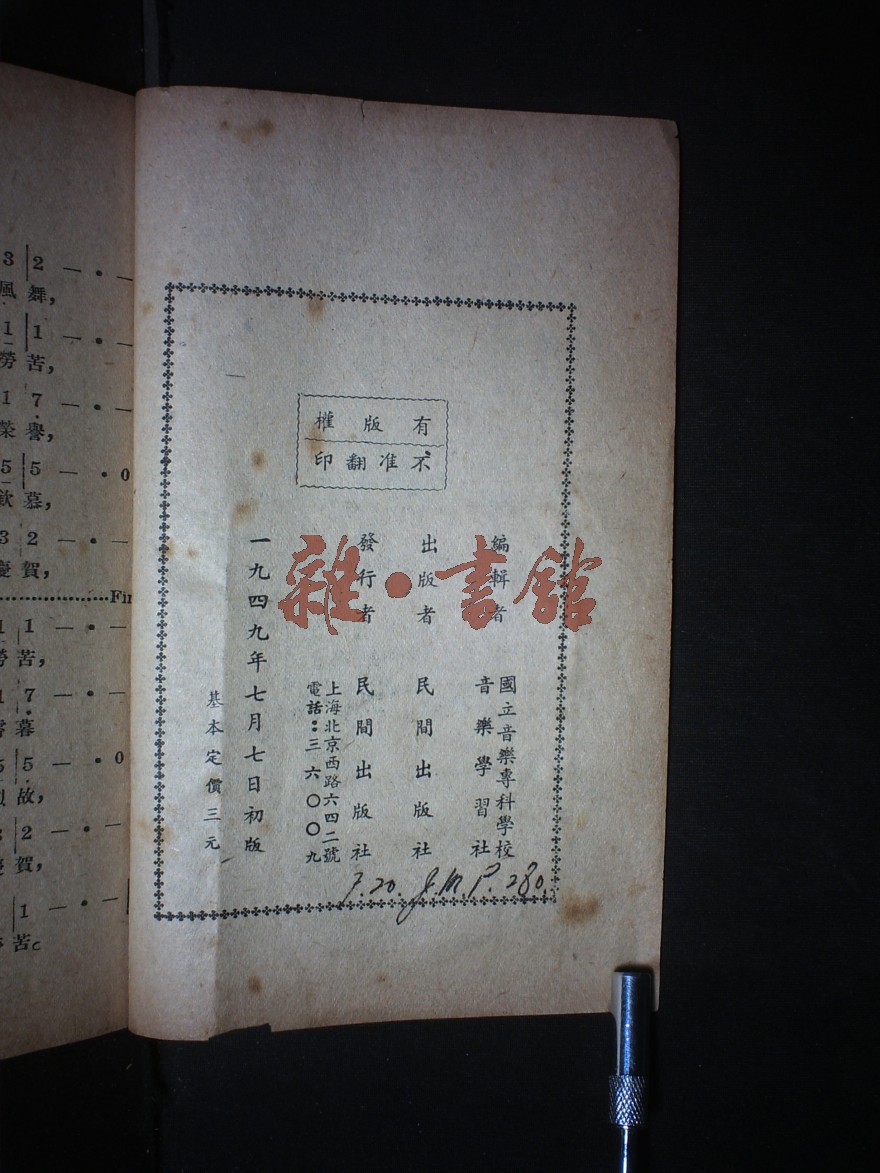 有版權
不准翻印
編輯者 國立音樂專科學校
音樂學習社
出版者 民間出版社
發行者 民間出版社
上海北京西路六四二號
電話：三六〇〇九
一九四九年七月七日初版
基本定價三元
7.20. J.M.P. 280.
雜·書館
3 | 2 — • —
風 舞，
1 | 1 — • —
勞 苦，
1 7 — • —
榮 譽，
5 | 5 — • 0
欽 慕，
3 2 — • —
慶 賀，
Fin
1 1 — • —
勞 苦，
1 7 — • —
暮
5 5 — • 0
故，
2 — • —
賀，
1 — •
苦c